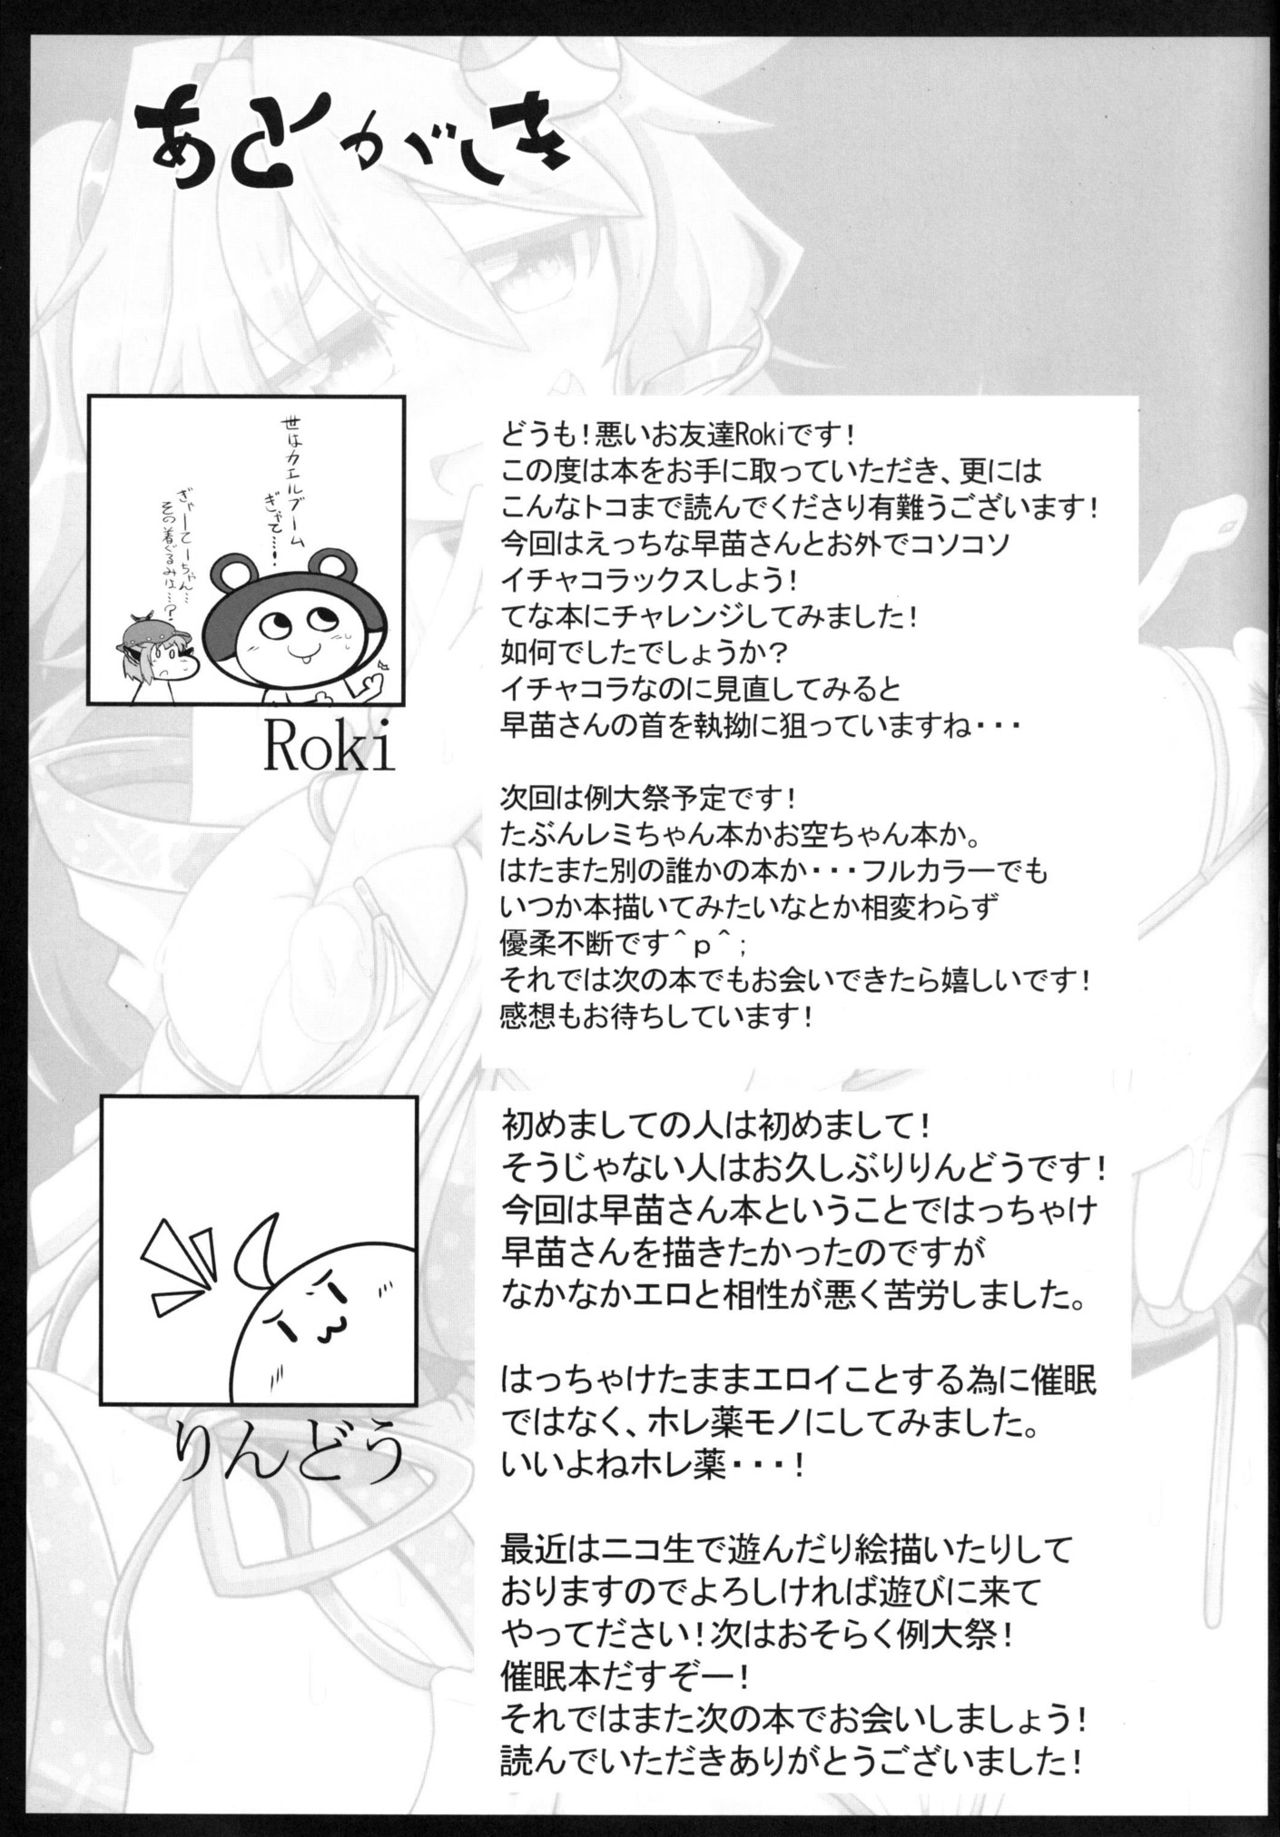 あとがき
世はカエルブーム
ぎゃて…!
ぎゃーてーちゃん…
その着ぐるみは…?
Roki
どうも!悪いお友達Rokiです!
この度は本をお手に取っていただき、更には
こんなトコまで読んでくださり有難うございます!
今回はえっちな早苗さんとお外でコソコソ
イチャコラックスしよう!
てな本にチャレンジしてみました!
如何でしたでしょうか?
イチャコラなのに見直してみると
早苗さんの首を執拗に狙っていますね・・・
次回は例大祭予定です!
たぶんレミちゃん本かお空ちゃん本か。
はたまた別の誰かの本か・・・フルカラーでも
いつか本描いてみたいなとか相変わらず
優柔不断です＾ｐ＾;
それでは次の本でもお会いできたら嬉しいです!
感想もお待ちしています!
りんどう
初めましての人は初めまして!
そうじゃない人はお久しぶりりんどうです!
今回は早苗さん本ということではっちゃけ
早苗さんを描きたかったのですが
なかなかエロと相性が悪く苦労しました。
はっちゃけたままエロイことする為に催眠
ではなく、ホレ薬モノにしてみました。
いいよねホレ薬・・・!
最近はニコ生で遊んだり絵描いたりして
おりますのでよろしければ遊びに来て
やってださい!次はおそらく例大祭!
催眠本だすぞー!
それではまた次の本でお会いしましょう!
読んでいただきありがとうございました!